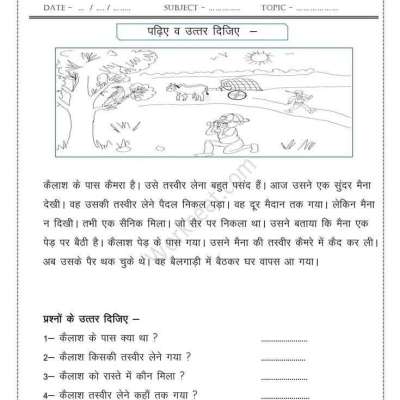 DATE - ... / .... / ....... SUBJECT - .............. TOPIC - ...................
पढ़िए व उत्तर दिजिए –
कैलाश के पास कैमरा है। उसे तस्वीर लेना बहुत पसंद हैं। आज उसने एक सुंदर मैना
देखी। वह उसकी तस्वीर लेने पैदल निकल पड़ा। वह दूर मैदान तक गया। लेकिन मैना
न दिखी। तभी एक सैनिक मिला। जो सैर पर निकला था। उसने बताया कि मैना एक
पेड़ पर बैठी है। कैलाश पेड़ के पास गया। उसने मैना की तस्वीर कैमरे में कैद कर ली।
अब उसके पैर थक चुके थे। वह बैलगाड़ी में बैठकर घर वापस आ गया।
प्रश्नों के उत्तर दिजिए –
1– कैलाश के पास क्या था ? .......................
2– कैलाश किसकी तस्वीर लेने गया ? .......................
3– कैलाश को रास्ते में कौन मिला ? .......................
4– कैलाश तस्वीर लेने कहाँ तक गया ? .......................